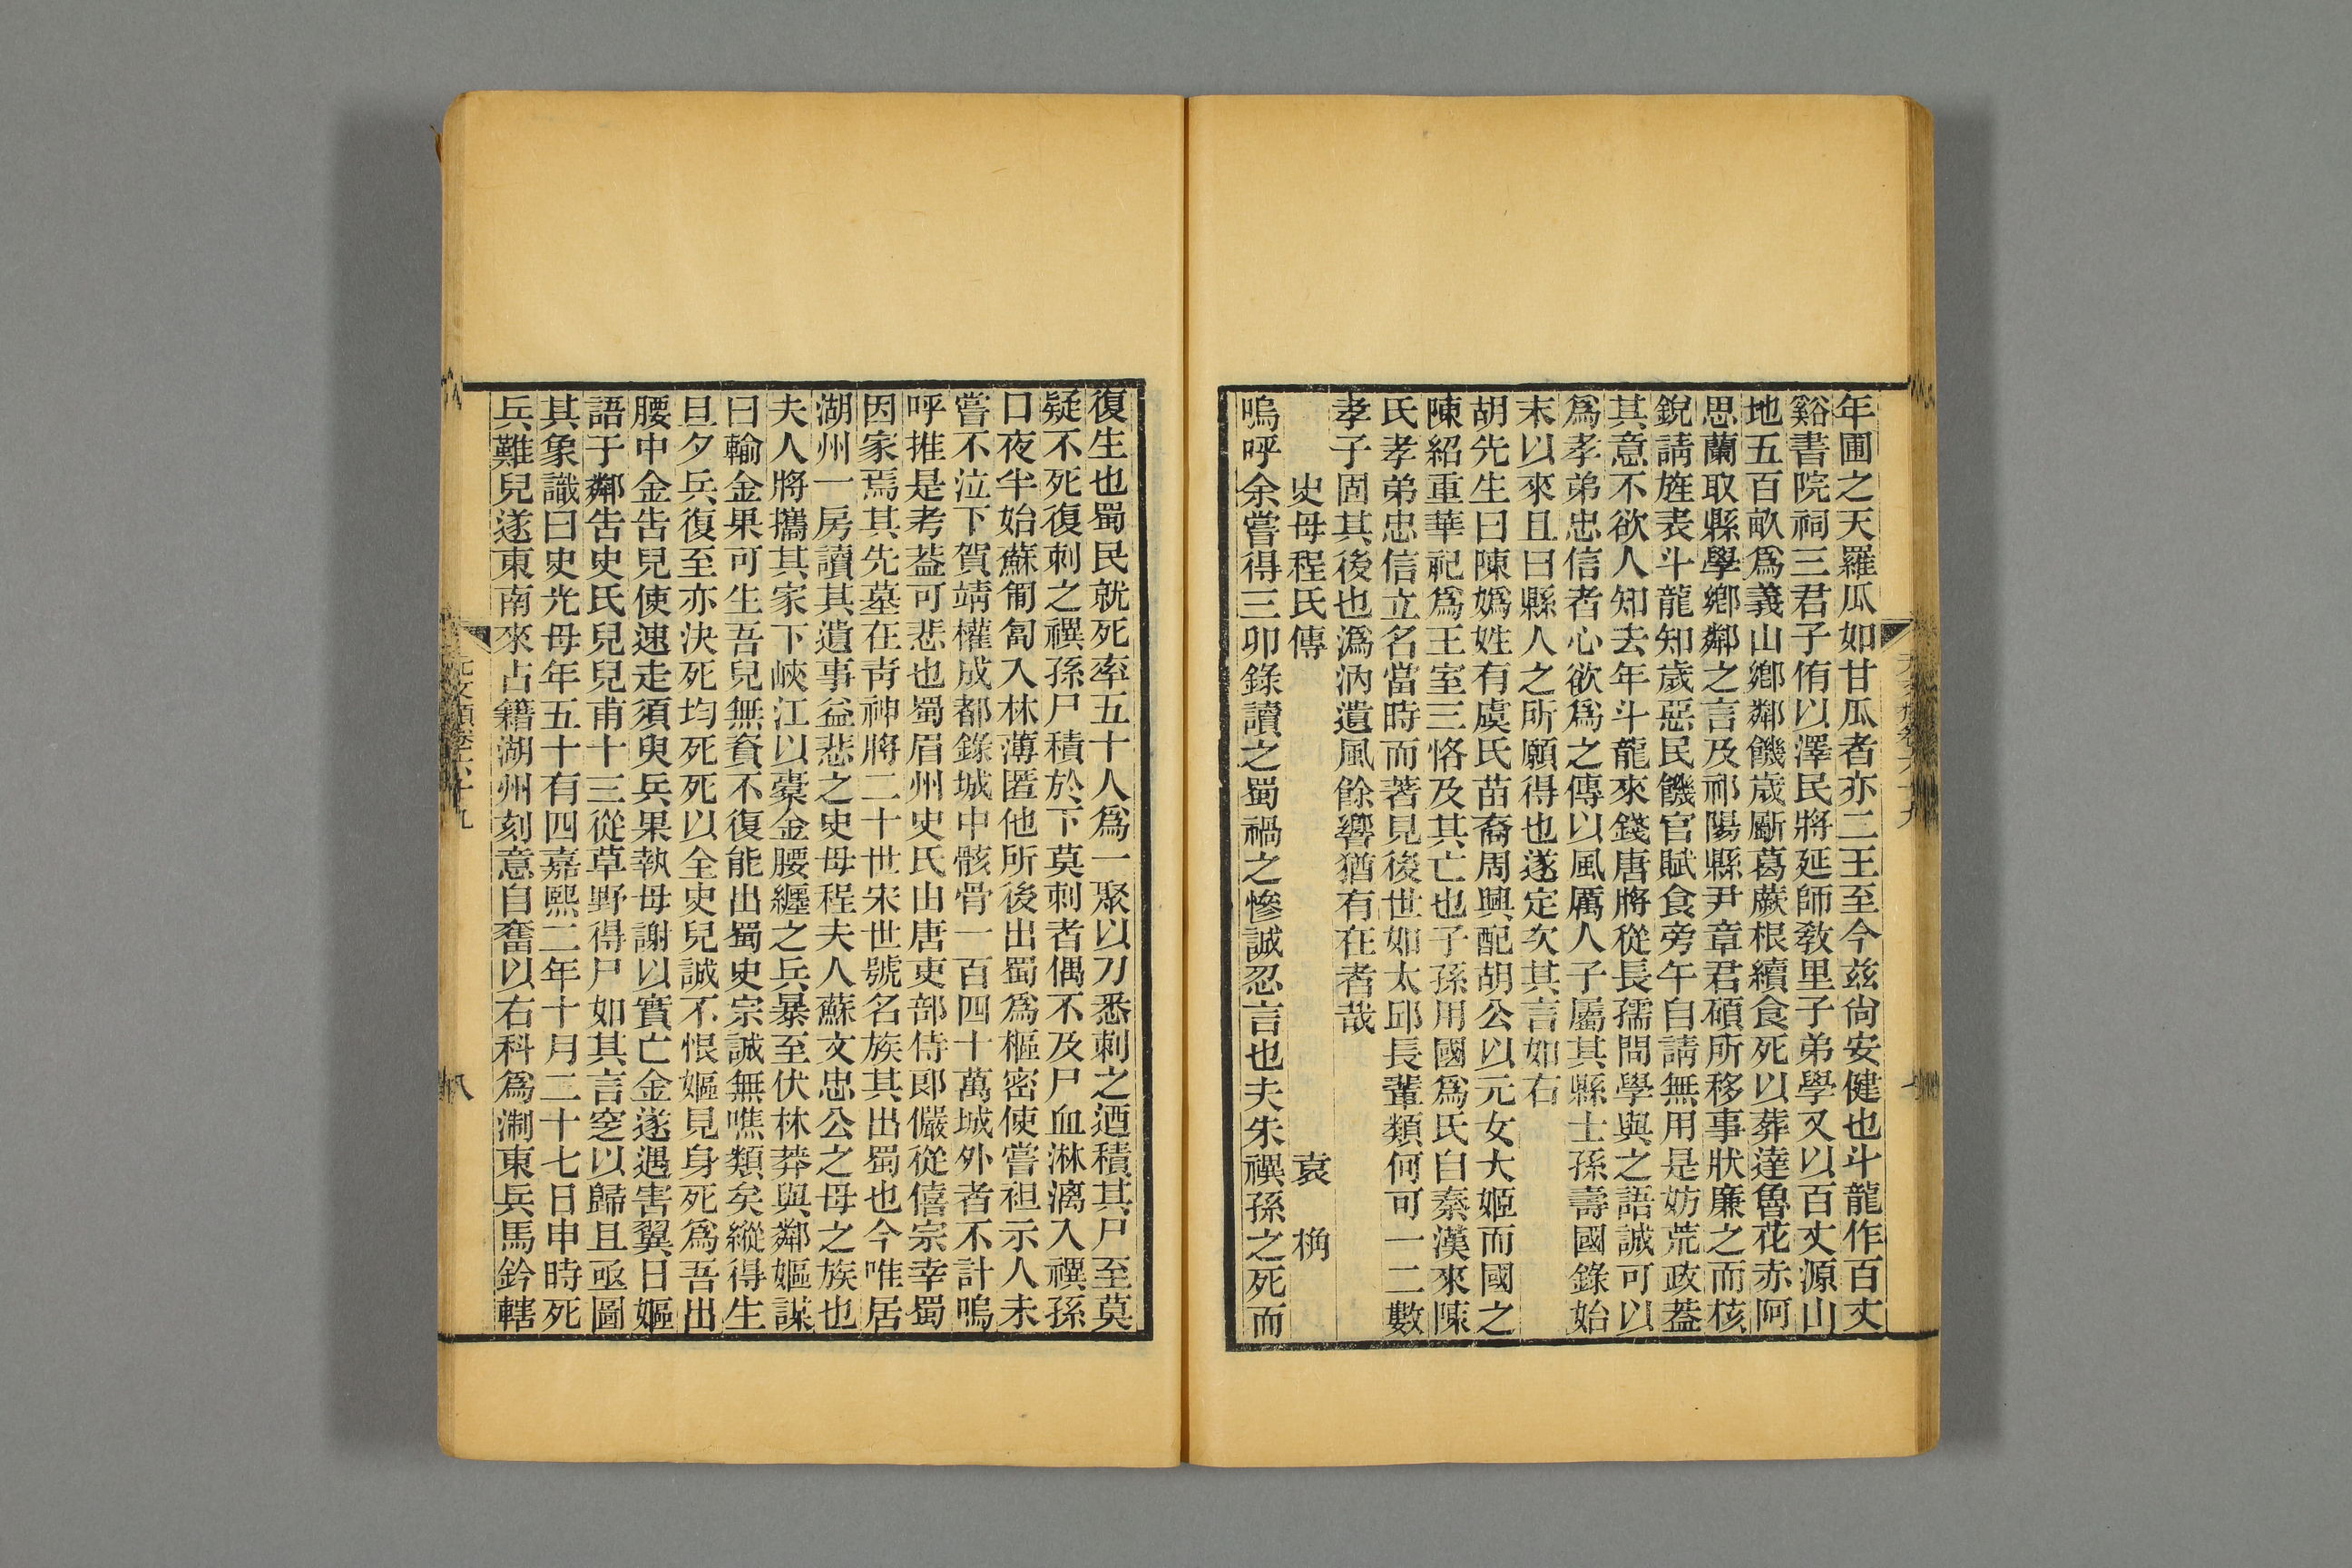 年圃之天羅瓜如甘瓜者亦二王至今兹尙安健也斗龍作百丈
谿書院祠三君子侑以澤民將延師敎里子弟學又以百丈源山
地五百畝爲義山鄕鄰饑歲斸葛蕨根續食死以葬達魯花赤阿
思蘭取縣學鄕鄰之言及祁陽縣尹章君碩所移事狀廉之而核
銳請旌表斗龍知歲惡民饑官賦食旁午自請無用是妨荒政葢
其意不欲人知去年斗龍來錢唐將從長孺問學與之語誠可以
爲孝弟忠信者心欲爲之傳以風厲人子屬其縣士孫壽國錄始
末以來且曰縣人之所願得也遂定次其言如右
胡先生曰陳嬀姓有虞氏苗裔周興配胡公以元女大姬而國之
陳紹重華祀爲王室三恪及其亡也子孫用國爲氏自秦漢來陳
氏孝弟忠信立名當時而著見後世如太邱長輩類何可一二數
孝子固其後也潙汭遺風餘響猶有在者哉
史母程氏傳 袁桷
嗚呼余嘗得三卯錄讀之蜀禍之慘誠忍言也夫朱禩孫之死而
復生也蜀民就死率五十人爲一聚以刀悉刺之迺積其尸至莫
疑不死復刺之禩孫尸積於下莫刺者偶不及尸血淋漓入禩孫
口夜半始蘇匍匐入林薄匿他所後出蜀爲樞密使嘗袒示人未
嘗不泣下賀靖權成都錄城中骸骨一百四十萬城外者不計嗚
呼推是考葢可悲也蜀眉州史氏由唐吏部侍郞儼從僖宗幸蜀
因家焉其先墓在靑神將二十世宋世號名族其出蜀也今唯居
湖州一房讀其遺事益悲之史母程夫人蘇文忠公之母之族也
夫人將攜其家下峽江以橐金腰纏之兵暴至伏林莽與鄰嫗謀
曰輸金果可生吾兒無資不復能出蜀史宗誠無噍類矣縱得生
旦夕兵復至亦決死均死死以全史兒誠不恨嫗見身死爲吾出
腰中金告兒使速走須臾兵果執母謝以實亡金遂遇害翼日嫗
語于鄰告史氏兒兒甫十三從草野得尸如其言窆以歸且亟圖
其象識曰史光母年五十有四嘉熙二年十月二十七日申時死
兵難兒遂東南來占籍湖州刻意自奮以右科爲淛東兵馬鈐轄
元文類卷六十九
八